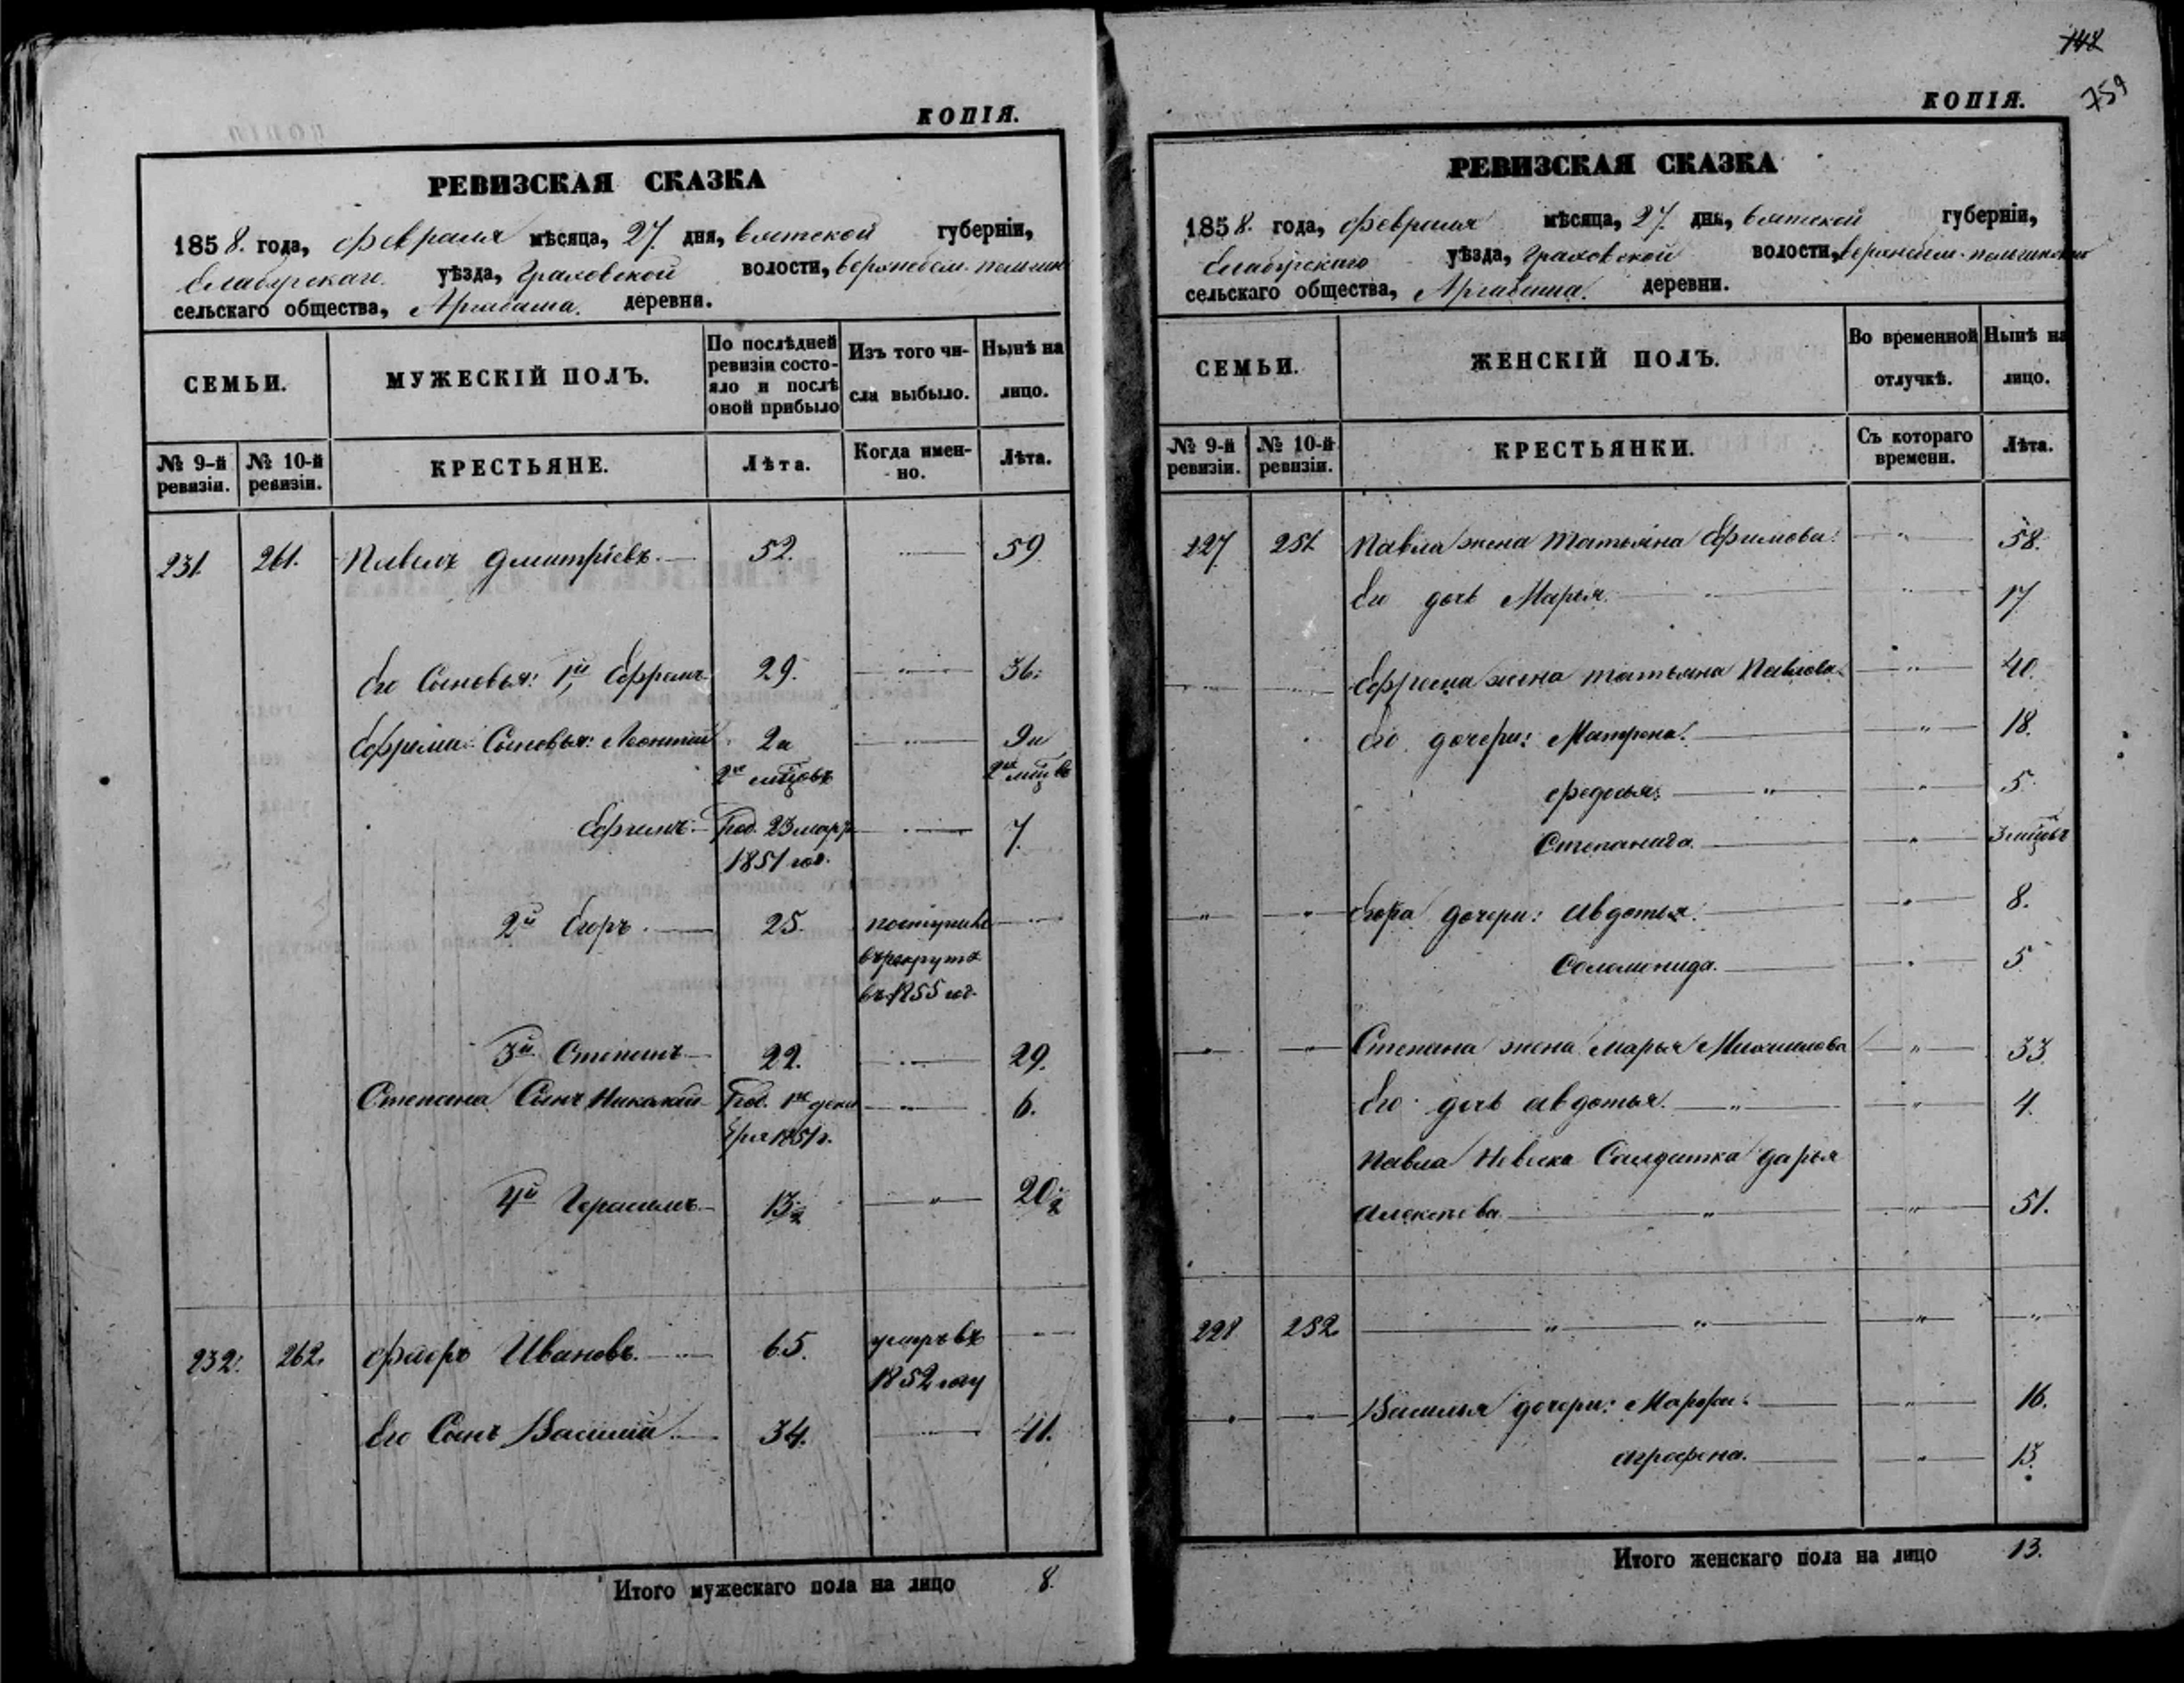 КОПІЯ.
РЕВИЗСКАЯ СКАЗКА
1858. года, февраля мѣсяца, 27. дня, вятской губерніи,
елабугскаго уѣзда, Граховской волости,
сельскаго общества, деревни.
СЕМЬИ.
МУЖЕСКІЙ ПОЛЪ.
По послѣдней ревизіи состояло и послѣ оной прибыло
Изъ того числа выбыло.
Нынѣ на лицо.
№ 9-й ревизіи.
№ 10-й ревизіи.
КРЕСТЬЯНЕ.
Лѣта.
Когда именно.
Лѣта.
231. 261. Павелъ Дмитріевъ. 52. 59.
Его Сыновья: 1й Ефремъ 29. 36.
Ефрема Сыновья: Леонтій 2 и 9 и
2хъ мцовъ 2хъ мцовъ
Род. 23 мар. 7.
1851 год.
2й Егоръ. 25. поступилъ
въ рекруты
въ 1855 год.
3й Степанъ 22. 29.
Степана Сынъ Николай Род. 1го дека 6.
бря 1851 г.
4й Герасимъ 13½ 20½
232. 262. Ѳедоръ Ивановъ. 65. умеръ въ
1852 году
Его Сынъ Василій 34. 41.
Итого мужескаго пола на лицо 8.
148
759
КОПІЯ.
РЕВИЗСКАЯ СКАЗКА
1858. года, февраля мѣсяца, 27. дня, вятской губерніи,
елабугскаго уѣзда, Граховской волости,
сельскаго общества, деревни.
СЕМЬИ.
ЖЕНСКІЙ ПОЛЪ.
Во временной отлучкѣ.
Нынѣ на лицо.
№ 9-й ревизіи.
№ 10-й ревизіи.
КРЕСТЬЯНКИ.
Съ котораго времени.
Лѣта.
227 251 Павла жена Татьяна Ефимова 58.
Его дочь Марья. 17
Ефрема жена Татьяна Павлова 40.
Его дочери: Матрена. 18.
Федосья 5.
Степанида. 3 мцовъ
Егора дочери: Авдотья. 8.
Соломонида. 5
Степана жена Марья 33.
Его дочь Авдотья. 4.
Павла Невѣска Салдатка Дарья
Алексѣева 51.
228 252
Василья дочери: Марфа 16.
Аграфена. 13.
Итого женскаго пола на лицо 13.